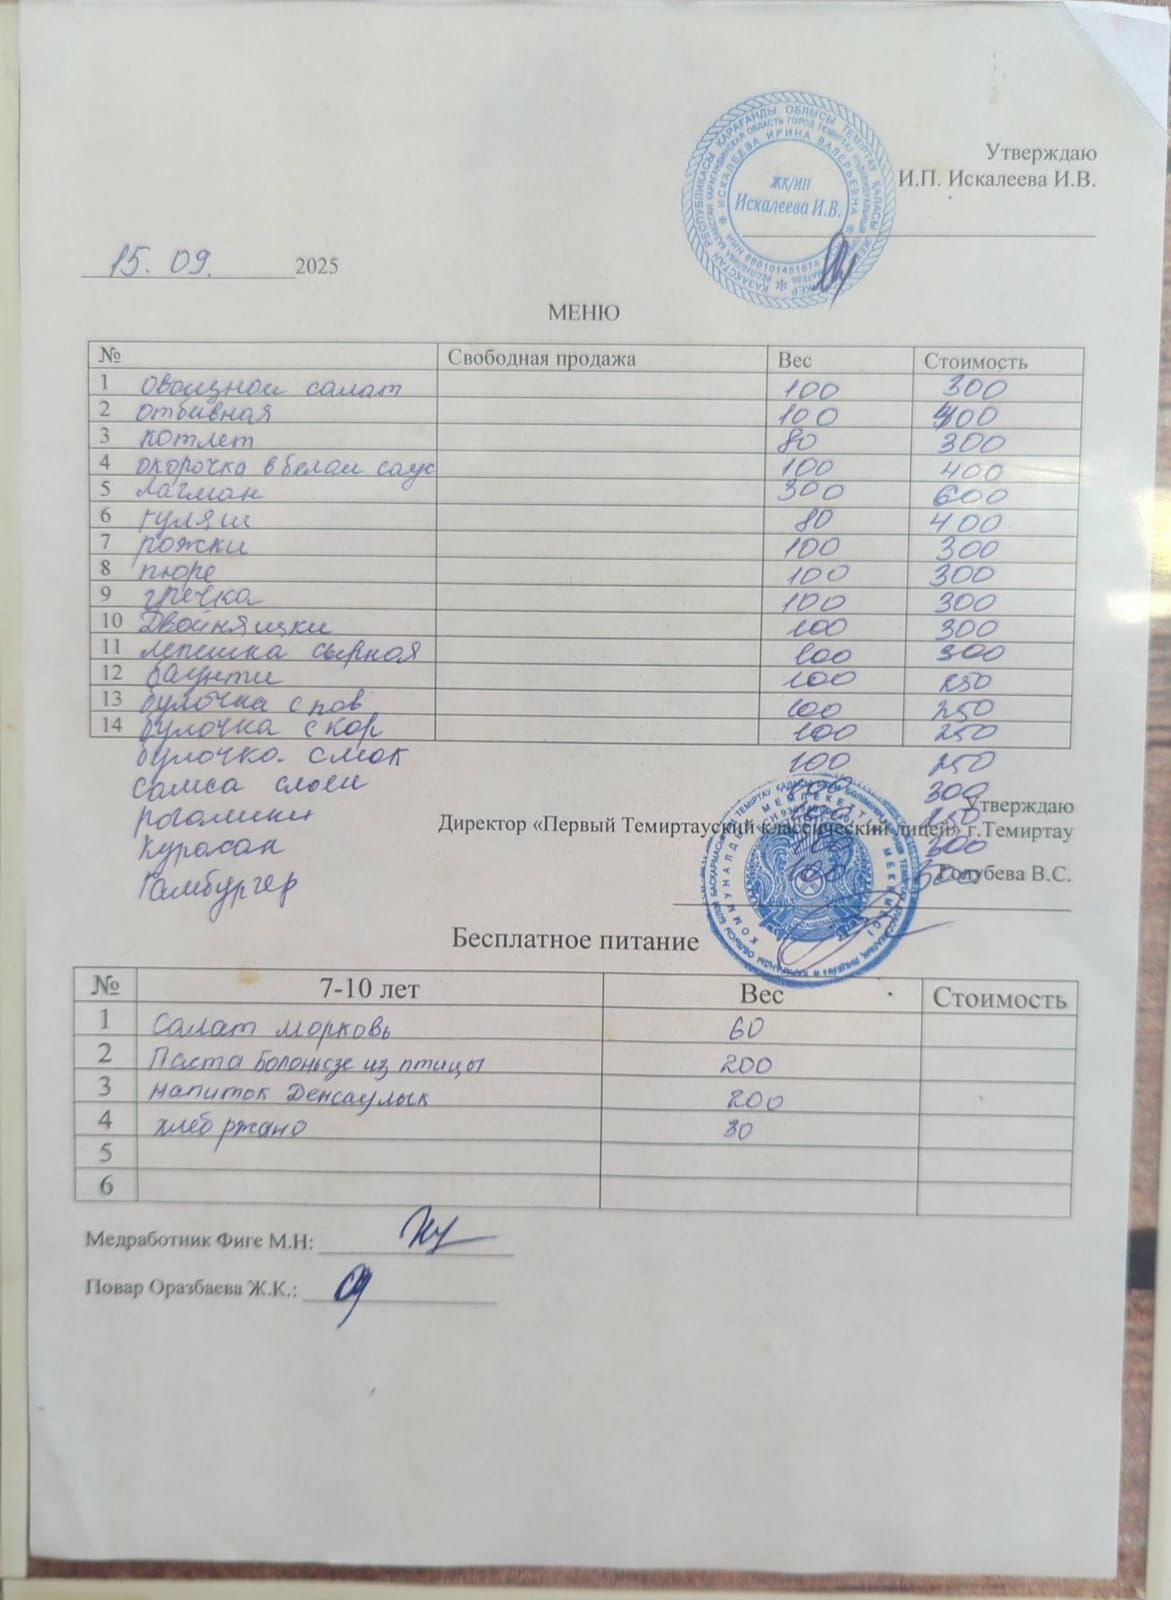 Утверждаю
И.П. Искалеева И.В.
ЖК/ИП
Искалеева И.В.
15. 09. 2025
МЕНЮ
№ Свободная продажа Вес Стоимость
1 овощной салат 100 300
2 отбивная 100 400
3 котлет 80 300
4 окорочка в белом соус 100 400
5 лагман 300 600
6 гуляш 80 400
7 рожки 100 300
8 пюре 100 300
9 гречка 100 300
10 Двойняшки 100 300
11 лепешка сырная 100 300
12 баунти 100 250
13 булочка с пов 100 250
14 булочка с кор 100 250
булочка с мак 100 250
самса слоен 100 300
Утверждаю
рогалики 100 250
Директор «Первый Темиртауский классический лицей» г.Темиртау
Курасан 100 300
Гамбургер 100 300
Голубева В.С.
Бесплатное питание
№ 7-10 лет Вес Стоимость
1 Салат морковь 60
2 Паста Болоньезе из птицы 200
3 напиток Денсаулык 200
4 хлеб ржано 30
5
6
Медработник Фиге М.Н:
Повар Оразбаева Ж.К.: